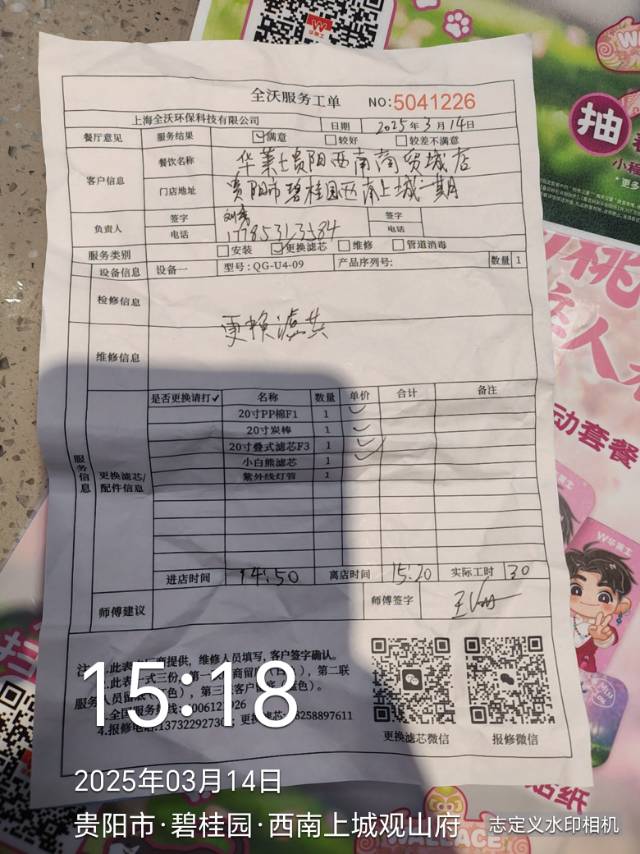 全沃服务工单 NO:5041226
上海全沃环保科技有限公司 日期 2025年3月14日
餐厅意见 服务结果 ☑满意 □较好 □较差不满意
客户信息 餐饮名称 华莱士贵阳西南商贸城店
门店地址 贵阳市碧桂园西南上城一期
负责人 签字 签字
电话 电话
服务类别 □安装 ☑更换滤芯 □维修 □管道消毒
设备信息 设备一 型号:QG-U4-09 产品序列号: 数量 1
检修信息
更换滤芯
维修信息
服务信息
更换滤芯/配件信息
是否更换请打✓ 名称 数量 单价 合计 备注
20寸PP棉F1 1 ✓
20寸炭棒 1 ✓
20寸叠式滤芯F3 1 ✓
小白熊滤芯 1
紫外线灯管 1
进店时间 14:50 离店时间 15:20 实际工时 30
师傅建议 师傅签字
商提供，维修人员填写，客户签字确认。
4.报修电话:13732292730
更换滤芯微信 报修微信
15:18
2025年03月14日
贵阳市·碧桂园·西南上城观山府
志定义水印相机
抽
动套餐
华莱士
贴纸
WALLACE